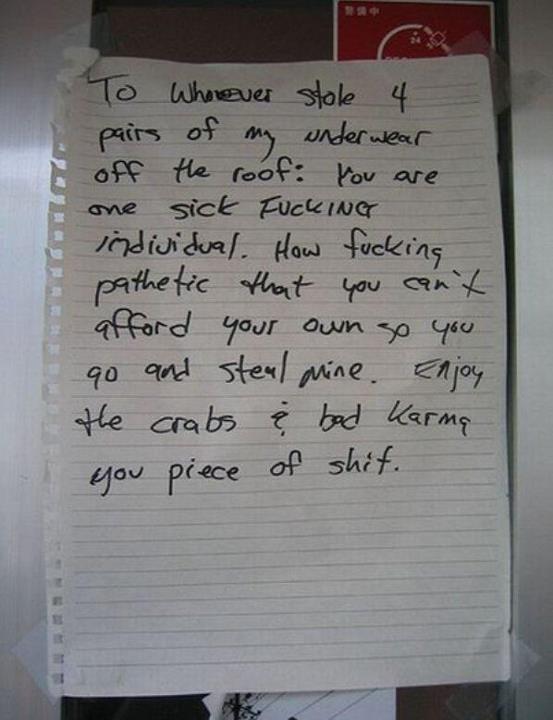 警備中
24
To Whoever stole 4
pairs of my underwear
off the roof: You are
one sick FUCKING
individual. How fucking
pathetic that you can't
afford your own so you
go and steal mine. Enjoy
the crabs & bad Karma
you piece of shit.